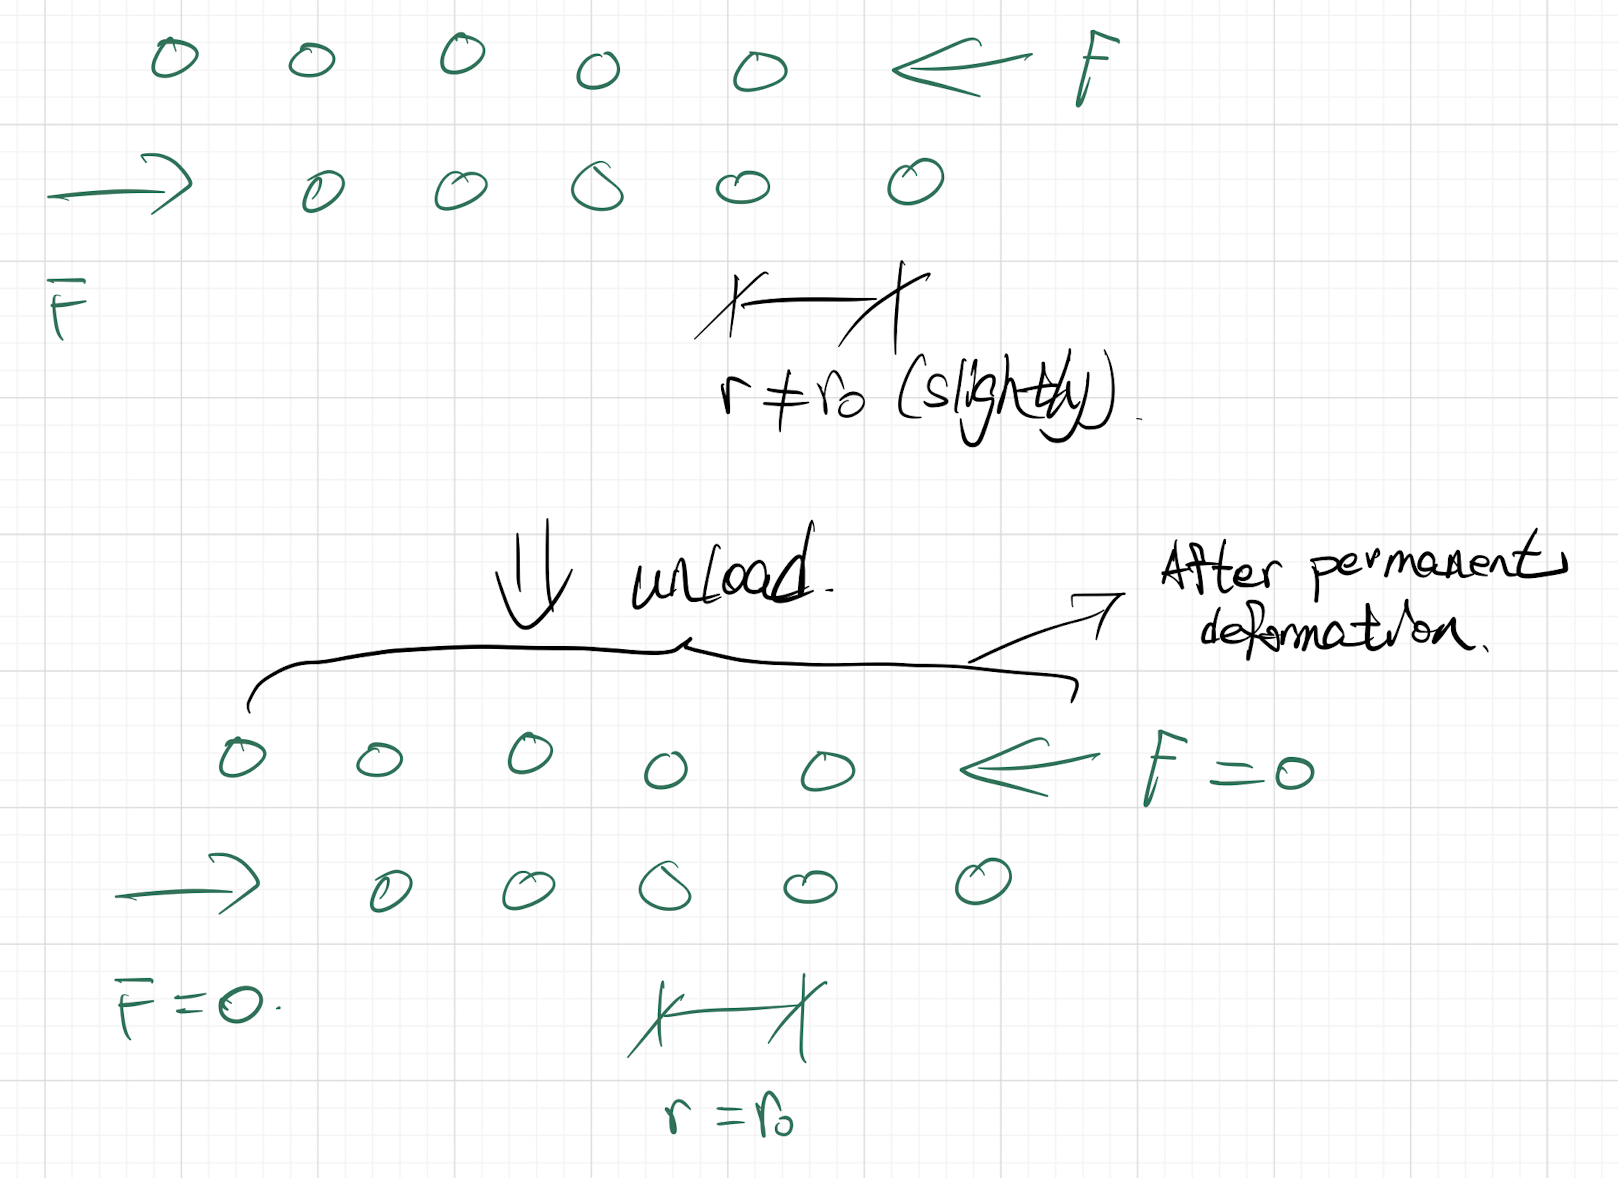 F
F
r ≠ r₀ (slightly).
unload.
After permanent
deformation.
F = 0
F = 0.
r = r₀